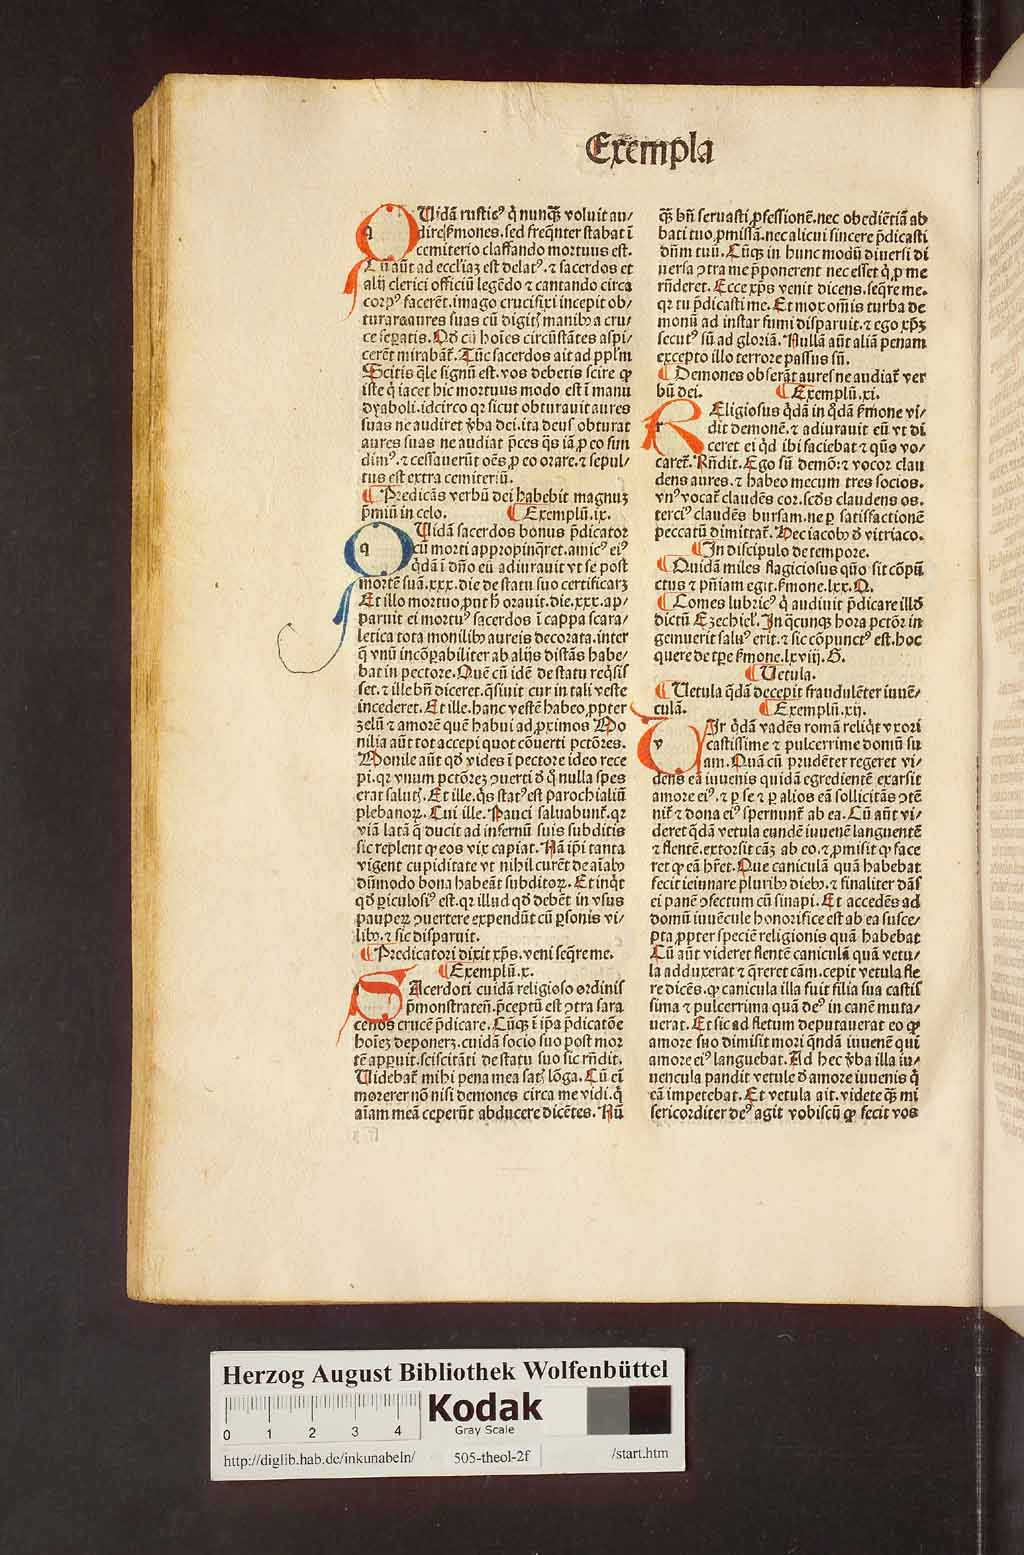 Exempla
QUidā rustic⁹ q̄ nunqꝫ voluit au/
dire ẜmones. sed freq̄nter stabat ī
cemiterio claffando mortuus est.
Cū aūt ad eccl'iaꝫ est delat⁹. ⁊ sacerdos et
alij clerici officiū legēdo ⁊ cantando circa
corp⁹ facerēt. imago crucifixi incepit ob/
turare aures suas cū digitꝭ manibꝰ a cru/
ce seperatis. Qd cū hoīes circūstātes aspi/
cerēt mirabāt᷑. Tūc sacerdos ait ad pp̄lm
Scitis q̄le signū est. vos debetis scire ꝙ
iste q̄ iacet hic mortuus modo est ī manu
dyaboli. idcirco qꝛ sicut obturauit aures
suas ne audiret v̄ba dei. ita deus obturat
aures suas ne audiat p̄ces q̄s iā ꝓ eo fun
dim⁹. ⁊ cessauerūt oēs ꝓ eo orare. ⁊ sepul/
tus est extra cemiteriū.
¶ Predicās verbū dei habebit magnuꝫ
p̄miū in celo. ¶ Exemplū. ix.
QUidā sacerdos bonus p̄dicator
cū morti appropinq̄ret. amic⁹ ei⁹
q̄dā ī dn̄o eū adiurauit vt se post
mortē suā. xxx. die de statu suo certificarꝫ
Et illo mortuo ꝓut h̄ orauit. die. xxx. ap/
paruit ei mortu⁹ sacerdos ī cappa scara/
letica tota monilibꝰ aureis decorata. inter
q̄ vnū incōꝑabiliter ab alijs distās habe/
bat in pectore. Quē cū idē de statu req̄sis
set. ⁊ ille bn̄ diceret. q̄siuit cur in tali veste
incederet. Et ille. hanc vestē habeo ꝓpter
zelū ⁊ amorē quē habui ad ꝓximos Mo
nilia aūt tot accepi quot cōuerti pctōres.
Monile aūt qd̄ vides ī pectore ideo rece
pi. qꝛ vnum pctōreꝫ ꝯuerti d̄ q̄ nulla spes
erat salutꝭ. Et ille. q̄s stat⁹ est parochialiū
plebanoꝝ. Cui ille. Pauci saluabunt᷑. qꝛ
viā latā q̄ ducit ad infernū suis subditis
sic replent ꝙ eos vix capiat. Nā ip̄i tanta
vigent cupiditate vt nihil curēt de aīabꝰ
dūmodo bona habeāt subditoꝝ. Et inq̄t
qd̄ ꝑiculosi⁹ est. qꝛ illud qd̄ debēt in vsus
pauperꝫ ꝯuertere expendūt cū ꝑsonis vi/
libꝰ. ⁊ sic disparuit.
¶ Predicatori dixit xp̄s. veni seq̄re me.
¶ Exemplū. x.
SAcerdoti cuidā religioso ordinis
p̄monstraten̄. p̄ceptū est ꝯtra sara
cenos crucē p̄dicare. Cūqꝫ ī ip̄a p̄dicatōe
hoīeꝫ deponerꝫ. cuidā socio suo post mor
tē apꝑuit. sciscitāti de statu suo sic rn̄dit.
Uidebat᷑ mihi pena mea satꝭ lōga. Cū eī
morerer nō nisi demones circa me vidi. q̄
aīam meā ceperūt abducere dicētes. Nū
qꝫ bn̄ seruasti ꝓfessionē. nec obediētiā ab
bati tuo ꝓmissā. nec alicui sincere p̄dicasti
dn̄m tuū. Cūqꝫ in hunc modū diuersi di
uersa ꝯtra me p̄ponerent nec esset q̄ ꝓ me
rn̄deret. Ecce xp̄s venit dicens. seq̄re me.
qꝛ tu p̄dicasti me. Et mox om̄is turba de
monū ad instar fumi disparuit. ⁊ ego xp̄ꝫ
secut⁹ sū ad gloriā. Nullā aūt aliā penam
excepto illo terrore passus sū.
¶ Demones obserāt aures ne audiāt ver
bū dei. ¶ Exemplū. xi.
REligiosus q̄dā in q̄dā ẜmone vi/
dit demonē. ⁊ adiurauit eū vt di
ceret ei qd̄ ibi faciebat ⁊ quō vo/
caret᷑. Rn̄dit. Ego sū demō. ⁊ vocor clau
dens aures. ⁊ habeo mecum tres socios.
vn⁹ vocat᷑ claudēs cor. scd̄s claudens os.
terci⁹ claudēs bursam. ne ꝑ satisfactionē
peccatū dimittat᷑. Hec iacobꝰ d̄ vitriaco.
¶ In discipulo de tempore.
¶ Quidā miles flagiciosus quō sit cōpū
ctus ⁊ pn̄iam egit. ẜmone. lxx. Q.
¶ Comes lubric⁹ q̄ audiuit p̄dicare illd̄
dictū Ezechiel'. In q̄cunqꝫ hora pctōr in
gemuerit salu⁹ erit. ⁊ sic cōpunct⁹ est. hoc
quere de tꝑe ẜmone. lxviij. G.
¶ Uetula.
¶ Uetula q̄dā decepit fraudulēter iuuē/
culā. ¶ Exemplū. xij.
UIr q̄dā vadēs romā reliq̄t vxori
castissime ⁊ pulcerrime domū su
am. Quā cū prudēter regeret vi/
dens eā iuuenis quidā egredientē exarsit
amore ei⁹. ⁊ ꝑ se ⁊ ꝑ alios eā sollicitās ꝯtē
nit᷑ ⁊ dona ei⁹ spernunt᷑ ab ea. Cū aūt vi/
deret q̄dā vetula eundē iuuenē languentē
⁊ flentē. extorsit cāꝫ ab eo. ⁊ ꝓmisit ꝙ face
ret ꝙ eā hr̄et. Que caniculā quā habebat
fecit ieiunare pluribꝰ diebꝰ. ⁊ finaliter dās
ei panē ꝯfectum cū sinapi. Et accedēs ad
domū iuuēcule honorifice est ab ea susce/
pta ꝓpter speciē religionis quā habebat
Cū aūt videret flentē caniculā quā vetu/
la adduxerat ⁊ q̄reret cām. cepit vetula fle
re dicēs. ꝙ canicula illa fuit filia sua castis
sima ⁊ pulcerrima quā de⁹ in canē muta/
uerat. Et sic ad fletum deputauerat eo ꝙ
amore suo dimisit mori q̄ndā iuuenē qui
amore ei⁹ languebat. Ad hec v̄ba illa iu/
uencula pandit vetule d̄ amore iuuenis q̄
eā impetebat. Et vetula ait. videte qꝫ mi
sericorditer de⁹ agit vobiscū ꝙ fecit vos
Herzog August Bibliothek Wolfenbüttel
0 1 2 3 4
Kodak
Gray Scale
http://diglib.hab.de/inkunabeln/ 505-theol-2f /start.htm